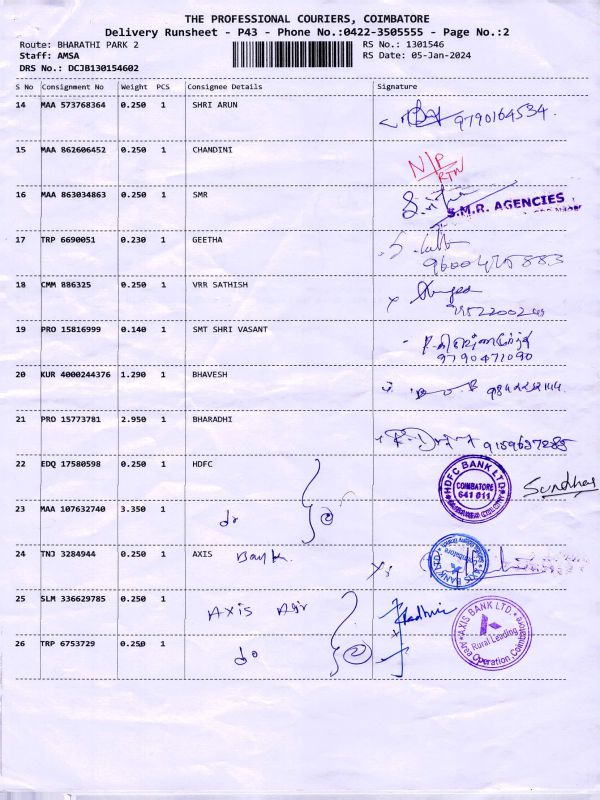 THE PROFESSIONAL COURIERS, COIMBATORE
Delivery Runsheet - P43 - Phone No.:0422-3505555 - Page No.:2
Route: BHARATHI PARK 2 RS No.: 1301546
Staff: AMSA RS Date: 05-Jan-2024
DRS No.: DCJB130154602
S No Consignment No Weight PCS Consignee Details Signature
14 MAA 573768364 0.250 1 SHRI ARUN 9790164534.
15 MAA 862606452 0.250 1 CHANDINI N/P RTN
16 MAA 863034863 0.250 1 SMR S.M.R. AGENCIES
17 TRP 6690051 0.230 1 GEETHA
18 CMM 886325 0.250 1 VRR SATHISH
19 PRO 15816999 0.140 1 SMT SHRI VASANT
9790471090
20 KUR 4000244376 1.290 1 BHAVESH
21 PRO 15773781 2.950 1 BHARADHI
22 EDQ 17580598 0.250 1 HDFC HDFC BANK LTD COIMBATORE 641 011 Sundhar
23 MAA 107632740 3.350 1 do
24 TNJ 3284944 0.250 1 AXIS Bank AXIS BANK LTD
25 SLM 336629785 0.250 1 AXIS Agr AXIS BANK LTD. Rural Lending Area Operation, Coimbatore
26 TRP 6753729 0.250 1 do